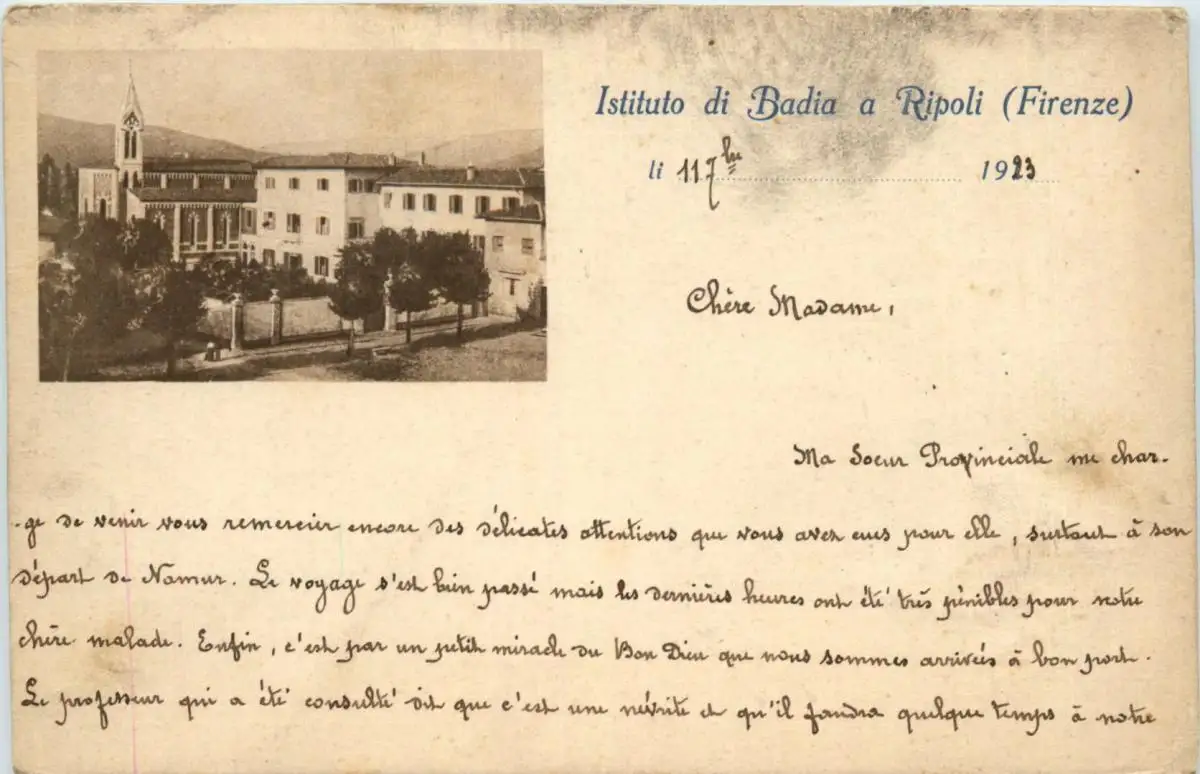 Istituto di Badia a Ripoli (Firenze)
li 11 7bre 1923
Chère Madame,
Ma Soeur Provinciale me char-
-ge de venir vous remercier encore des délicates attentions que vous avez eues pour elle, surtout à son
départ de Namur. Le voyage s'est bien passé mais les dernières heures ont été très pénibles pour notre
chère malade. Enfin, c'est par un petit miracle du Bon Dieu que nous sommes arrivées à bon port.
Le professeur qui a été consulté dit que c'est une névrite et qu'il faudra quelque temps à notre